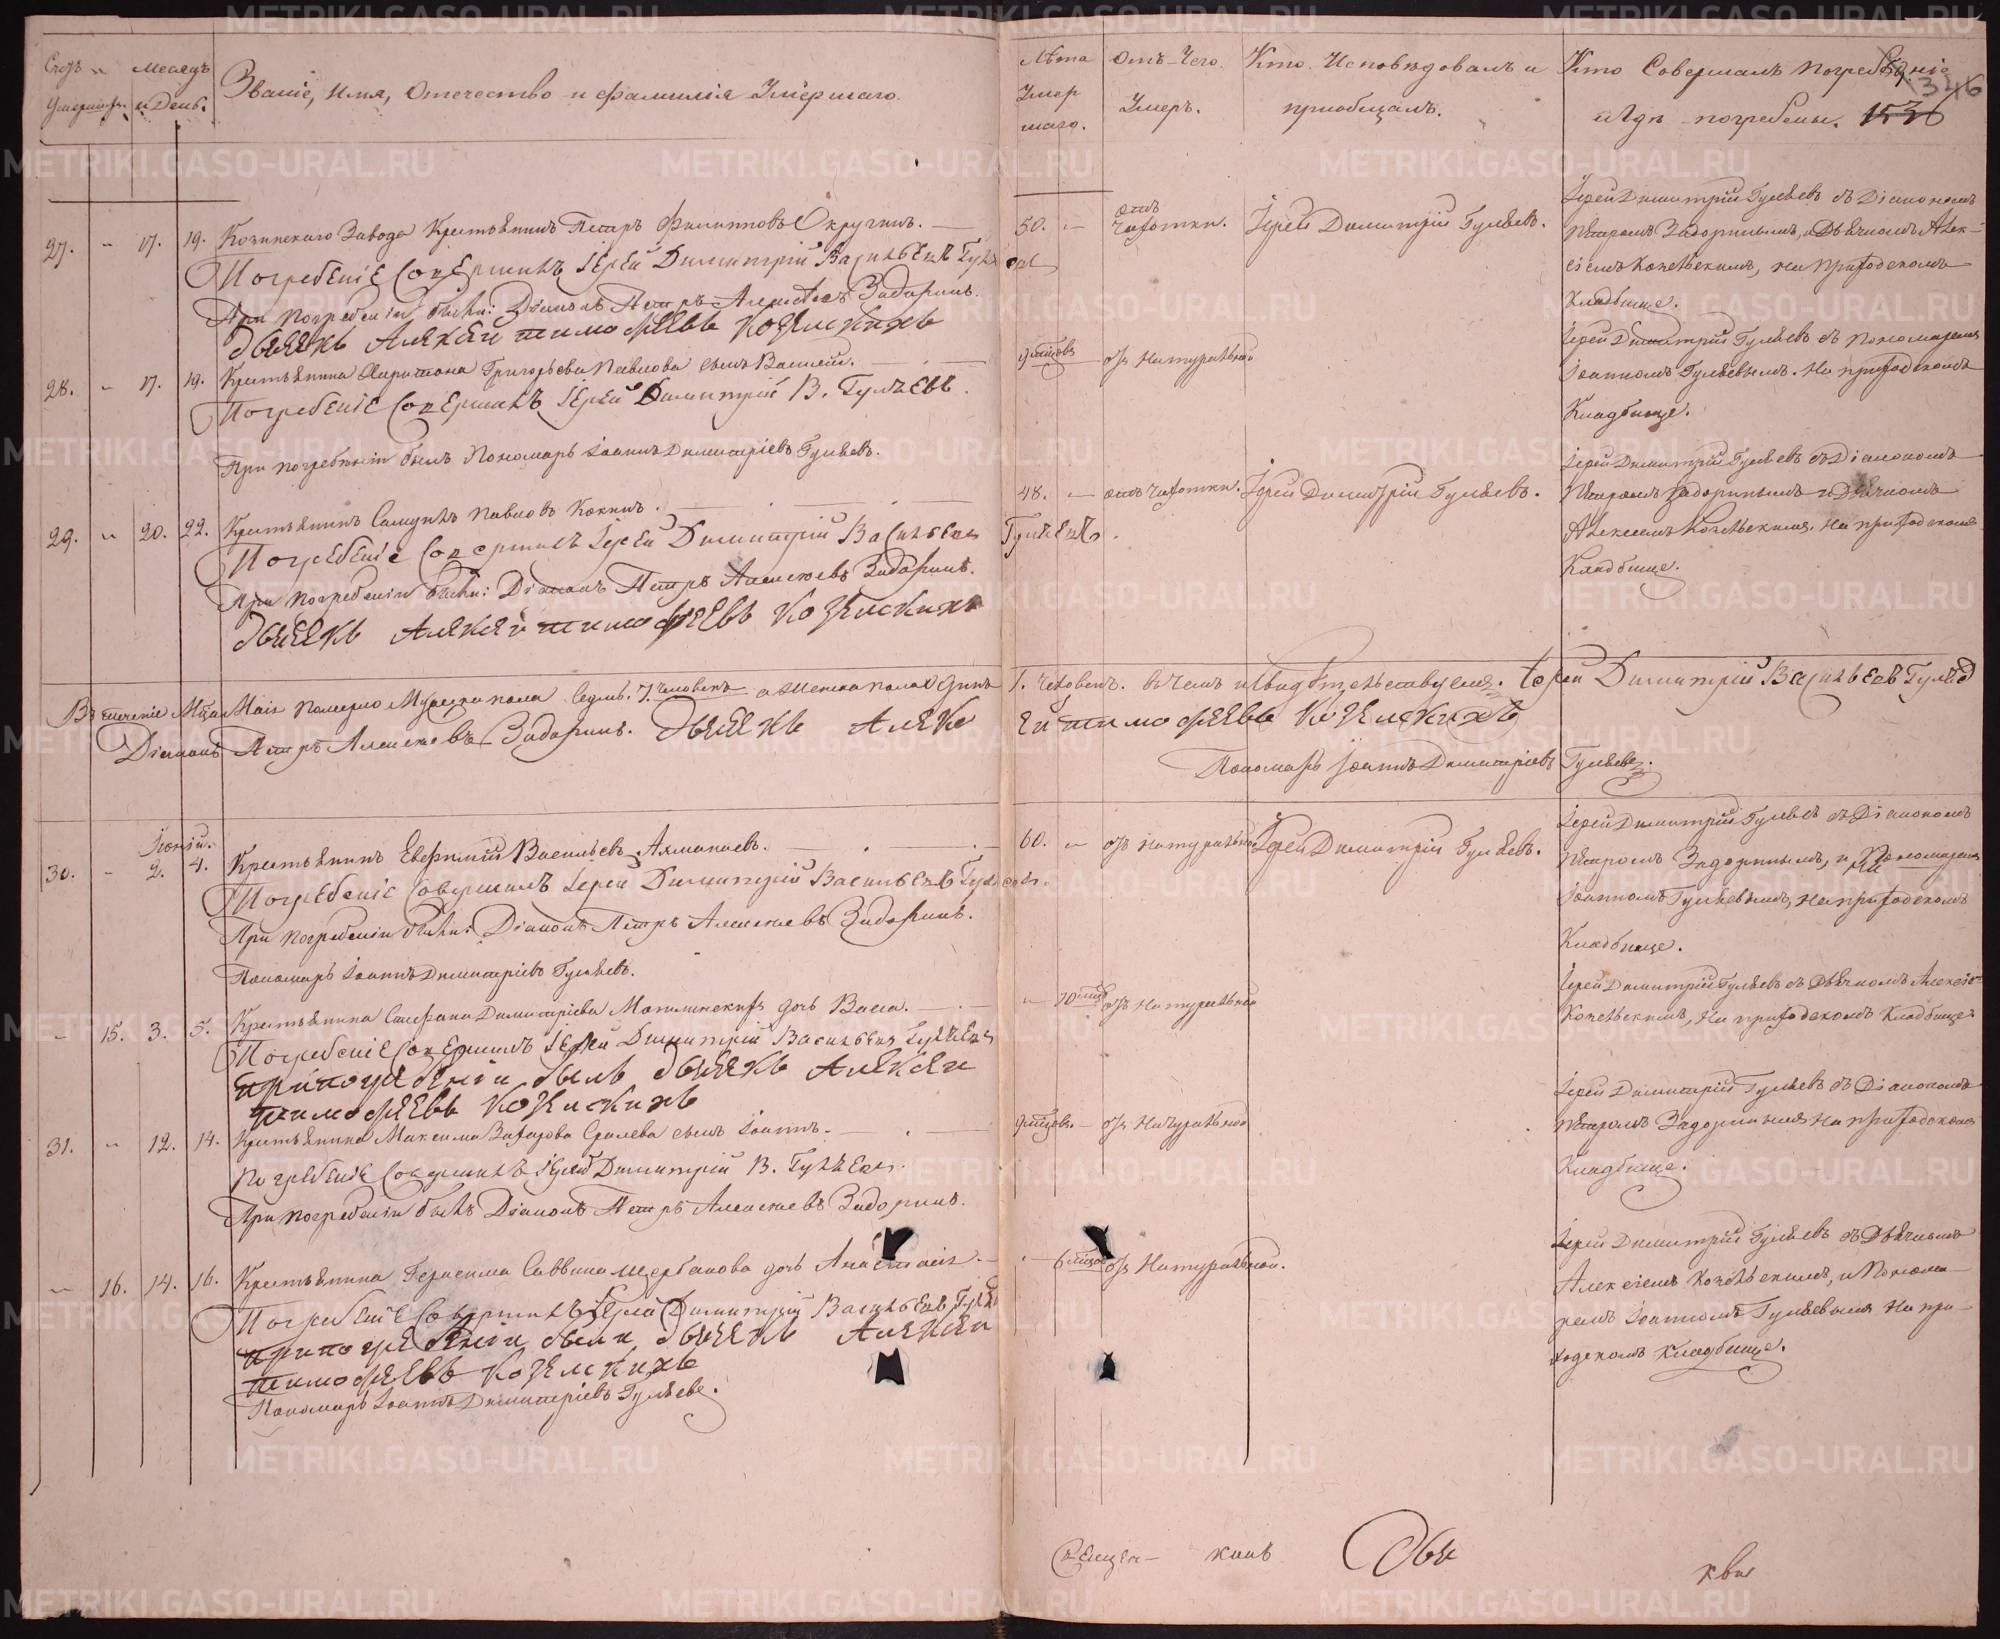 Счетъ умершихъ.
Месяцъ и День.
Званіе, Имя, Отечество и фамилія Умершаго.
Лѣта Умер шаго.
Отъ Чего Умеръ.
Кто Исповѣдовалъ и приобщалъ.
Кто Совершалъ погребеніе и Гдѣ погребены.
346
27. " 17. 19.
завода Крестьянинъ Петръ Филипповъ Окружинъ.
Погребеніе Совершилъ Іерей Димитрій Васильевъ
При погребеніи были: Діаконъ Петръ Алексѣевъ Задоринъ.
дьячекъ Алексей тимофѣевъ
50. " отъ чахотки. Іерей Димитрій Гуляевъ.
Іерей Димитрій Гуляевъ съ Діакономъ
Петромъ Задоринымъ, и Дьячкомъ Алек-
сіемъ на приходскомъ
Кладбище.
28. " 17. 19.
Крестьянина Харитона Григорьева Павлова сынъ Василій.
Погребеніе Совершилъ Іерей Димитрій В. Гуляевъ.
При погребеніи былъ Пономарь Іоаннъ Димитріевъ Гуляевъ.
Іерей Димитрій Гуляевъ съ Пономаремъ
Іоанномъ Гуляевымъ. На приходскомъ
Кладбище.
29. " 20. 22.
Крестьянинъ Самуилъ Павловъ Кокинъ.
Погребеніе Совершилъ Іерей Димитрій Васильевъ Гуляевъ.
При погребеніи были: Діаконъ Петръ Алексѣевъ Задоринъ.
дьячекъ Алексей тимофѣевъ
48. " отъ чахотки. Іерей Димитрій Гуляевъ.
Іерей Димитрій Гуляевъ съ Діакономъ
Петромъ Задоринымъ и Дьячкомъ
Алексеемъ на приходскомъ
Кладбище.
Въ теченіе Мѣсяца Маія Померло Мужеска пола Седмь. 7. человекъ а Женска пола Одинъ 1. Человекъ. въ чемъ и свидѣтельствуемъ. Іерей Димитрій Васильевъ Гуляевъ
Діаконъ Петръ Алексѣевъ Задоринъ. дьячекъ Алексей тимофѣевъ
Пономарь Іоаннъ Димитріевъ Гуляевъ.
Іюній.
30. " 2. 4.
Крестьянинъ Евфимій Васильевъ
Погребеніе Совершилъ Іерей Димитрій Васильевъ
При погребеніи были: Діаконъ Петръ Алексѣевъ Задоринъ.
Пономарь Іоаннъ Димитріевъ Гуляевъ.
60. " отъ натуральной Іерей Димитрій Гуляевъ.
Іерей Димитрій Гуляевъ съ Діакономъ
Петромъ Задоринымъ, и Пономаремъ
Іоанномъ Гуляевымъ, на приходскомъ
Кладбище.
" 15. 3. 5.
Крестьянина Стефана Димитріева дочь Васса.
Погребеніе Совершилъ Іерей Димитрій Васильевъ Гуляевъ
при погребеніи былъ дьячекъ Алексей
тимофѣевъ
отъ натуральной
Іерей Димитрій Гуляевъ съ Дьячкомъ Алексіе-
на приходскомъ Кладбище
31. " 12. 14.
Крестьянина Максима сынъ Іоаннъ.
Погребеніе Совершилъ Іерей Димитрій В. Гуляевъ.
При погребеніи былъ Діаконъ Петръ Алексѣевъ Задоринъ.
отъ Натуральной
Іерей Димитрій Гуляевъ съ Діакономъ
Петромъ Задоринымъ на приходскомъ
Кладбище.
" 16. 14. 16.
Крестьянина Герасима Саввина Щербакова дочь Анастасія.
Погребеніе Совершилъ Іерей Димитрій Васильевъ
при погребеніи были дьячекъ Алексей
тимофѣевъ
Пономарь Іоаннъ Димитріевъ Гуляевъ.
отъ Натуральной.
Іерей Димитрій Гуляевъ съ Дьячкомъ
Алексіемъ и Понома-
ремъ Іоанномъ Гуляевымъ на при-
ходскомъ Кладбище.
METRIKI.GASO-URAL.RU